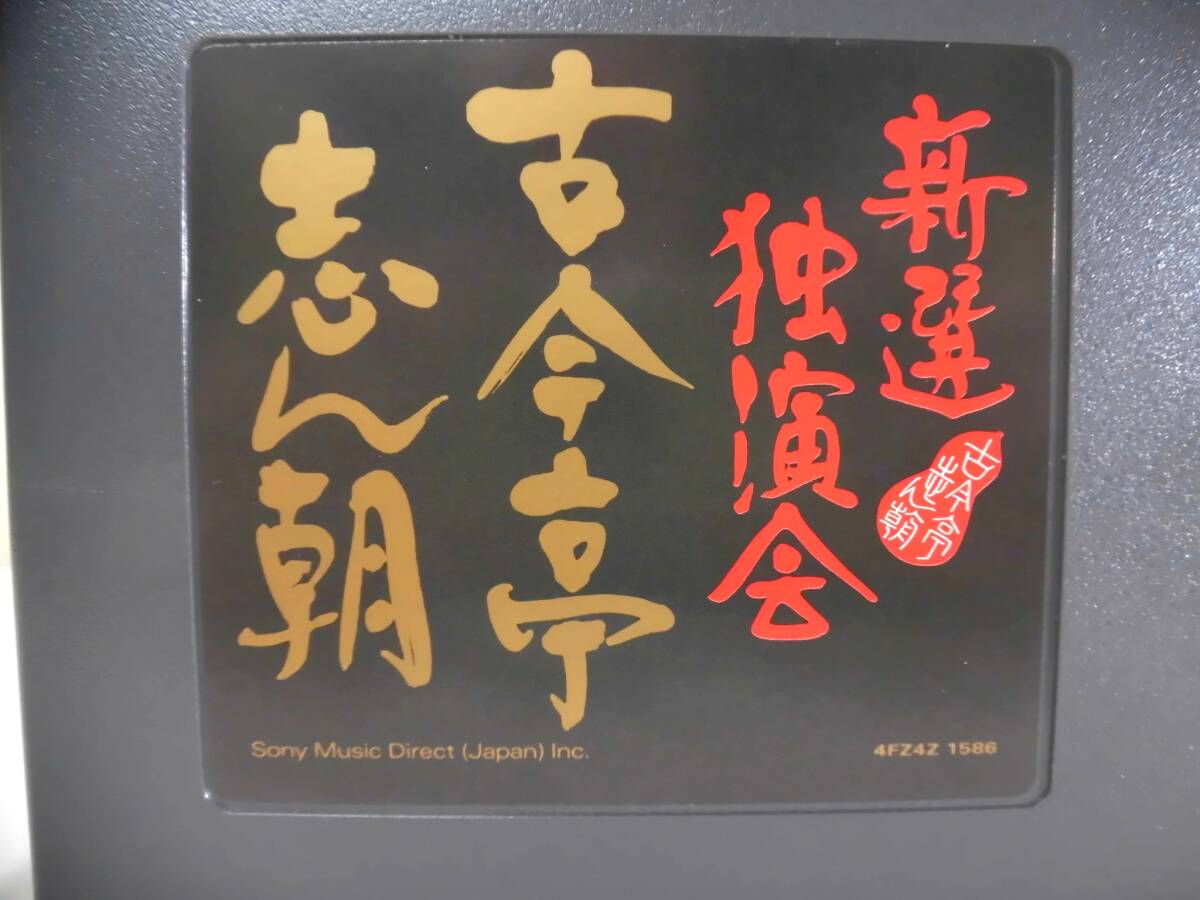 新選
独演会
古今亭
志ん朝
古今亭
志ん朝
Sony Music Direct (Japan) Inc.
4FZ4Z 1586